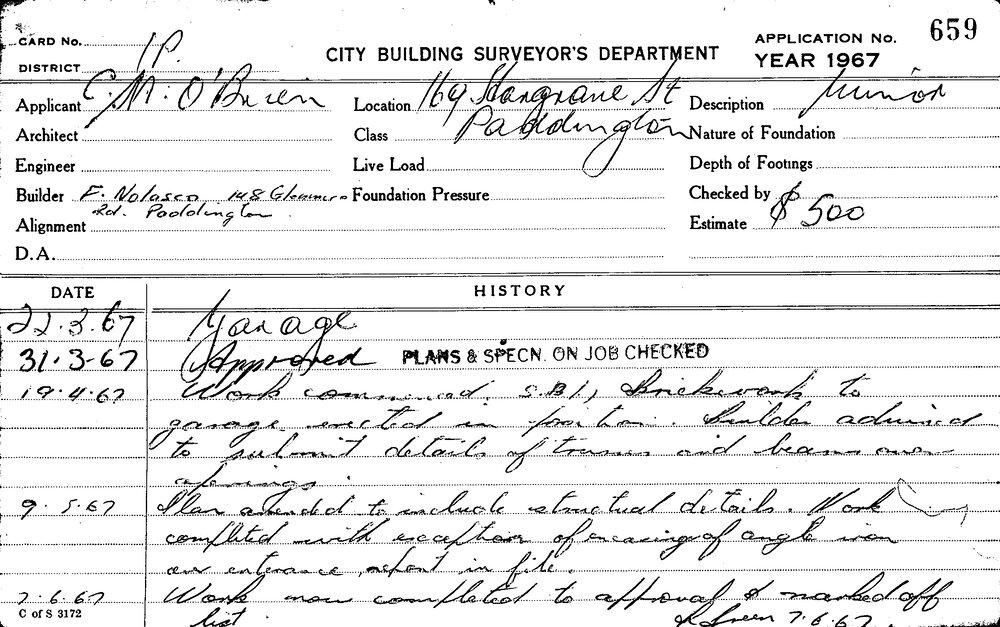 CARD No.
DISTRICT 1P.
CITY BUILDING SURVEYOR'S DEPARTMENT
APPLICATION No. 659
YEAR 1967
Applicant C. M. O'Brien Location 169 Hargrave St Description Minor
Architect Class Paddington Nature of Foundation
Engineer Live Load Depth of Footings
Builder F. Nolasco 148 Glenmore Foundation Pressure Checked by
Rd. Paddington
Alignment Estimate $500
D.A.
DATE HISTORY
22.3.67 Garage
31.3.67 Approved PLANS & SPECN. ON JOB CHECKED
19.4.67 Work commenced. S.B1, Brickwork to
garage erected in position. Builder advised
to submit details of trusses and beams over
openings.
9.5.67 Plan amended to include structual details. Work
completed with exception of encasing of angle iron
over entrance, report in file.
7.6.67 Work now completed to approval & marked off
list. 7.6.67
C of S 3172